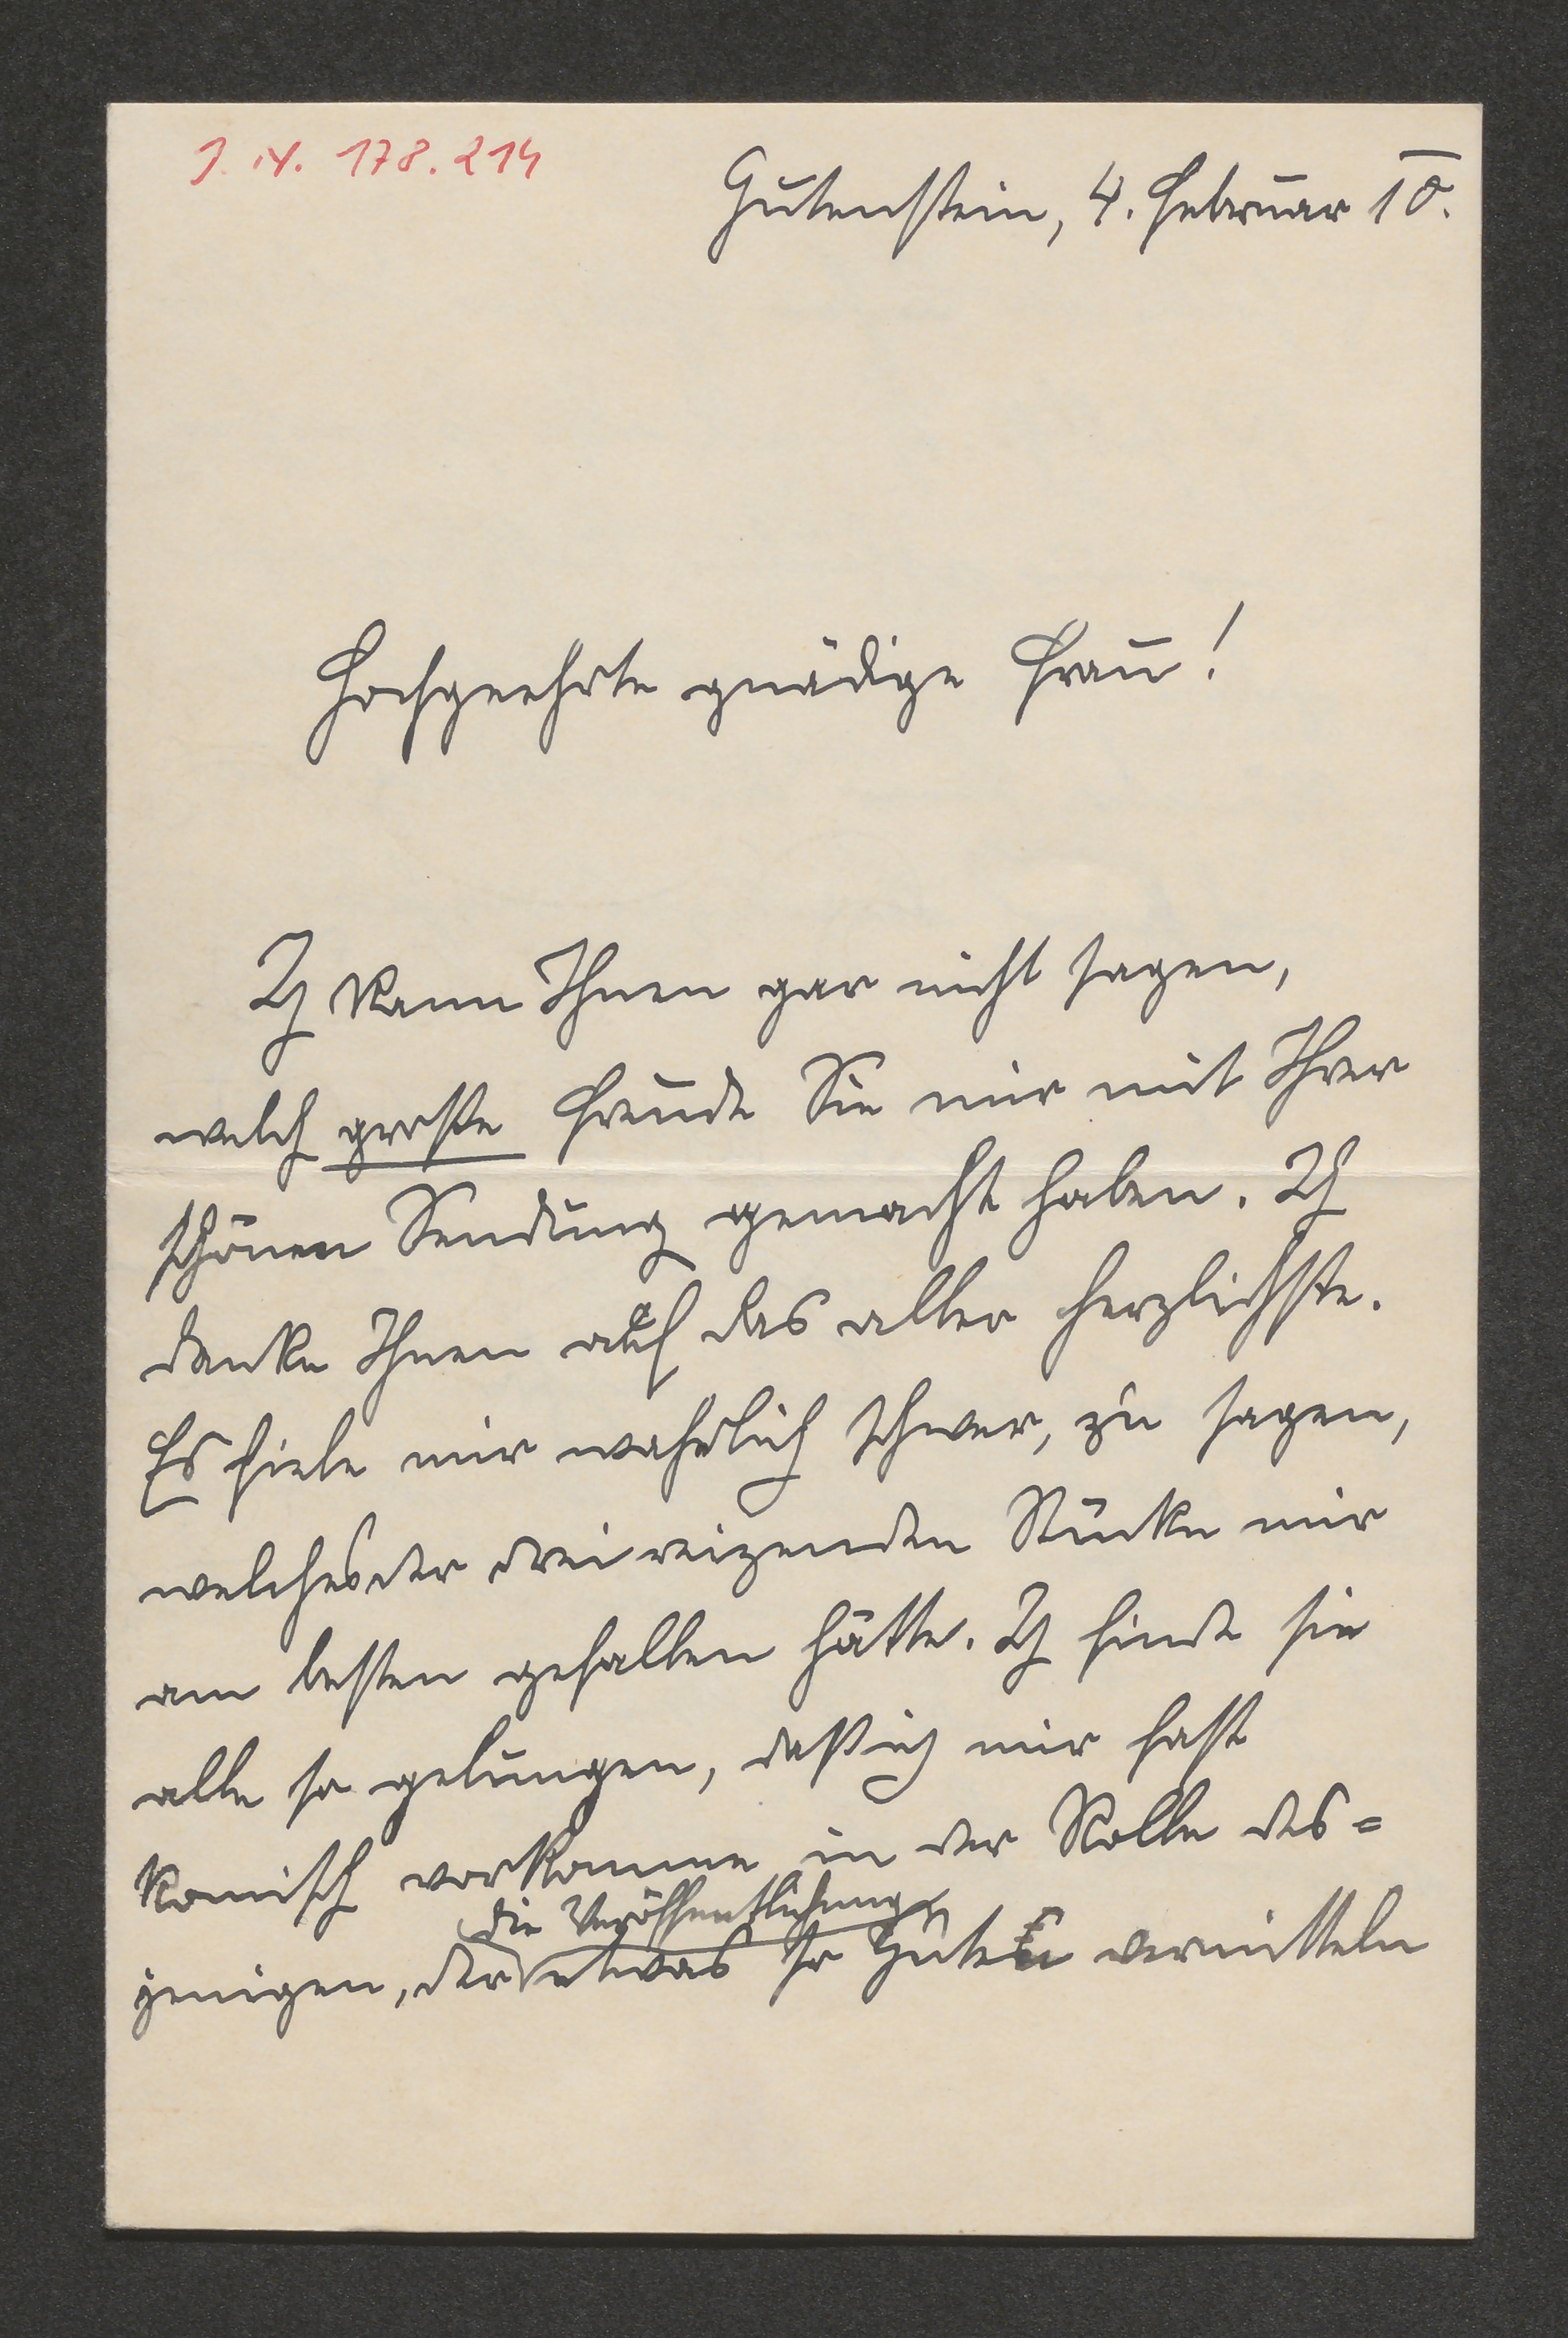 J. N. 178.214
Gutenstein, 4. Februar 10.
Hochgeehrte gnädige Frau!
Ich kann Ihnen gar nicht sagen,
welch große Freude Sie mir mit Ihrer
schönen Sendung gemacht haben. Ich
danke Ihnen auf das aller herzlichste.
Es fiele mir wahrlich schwer, zu sagen,
welches der drei reizenden Stücke mir
am besten gefallen hätte. Ich finde sie
alle so gelungen, daß ich mir fast
komisch vorkomme in der Rolle des=
die Veröffentlichung
jenigen, der etwas so Gutes vermitteln